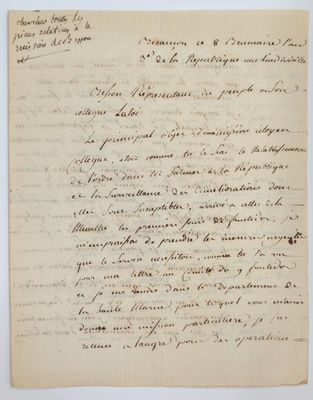 chercher toutes les
pièces relatives à la
mission de
Besançon ce 8 Brumaire l'an
3e de la Republique une et indivisible
Representant du peuple à Son
collegue
Le principal objet de ma mission citoyen
collegue, étoit comme tu le Sais le Retablissement
de l'ordre dans les Salines de la République
et la Surveillance des améliorations dont
elles Sont Susceptibles, arrivé à celle de la
Meurthe les premiers jours de fructidor, je
m'empressai de prendre les mesures urgentes
que le Service necessitoit, comme tu l'as vu
par ma lettre au Comité du 9 fructidor
et je me rendis dans le Departement de
la haute Marne pour lequel vous m'aviez
donné une mission particuliere, je fus
retenu a langre pour des operations